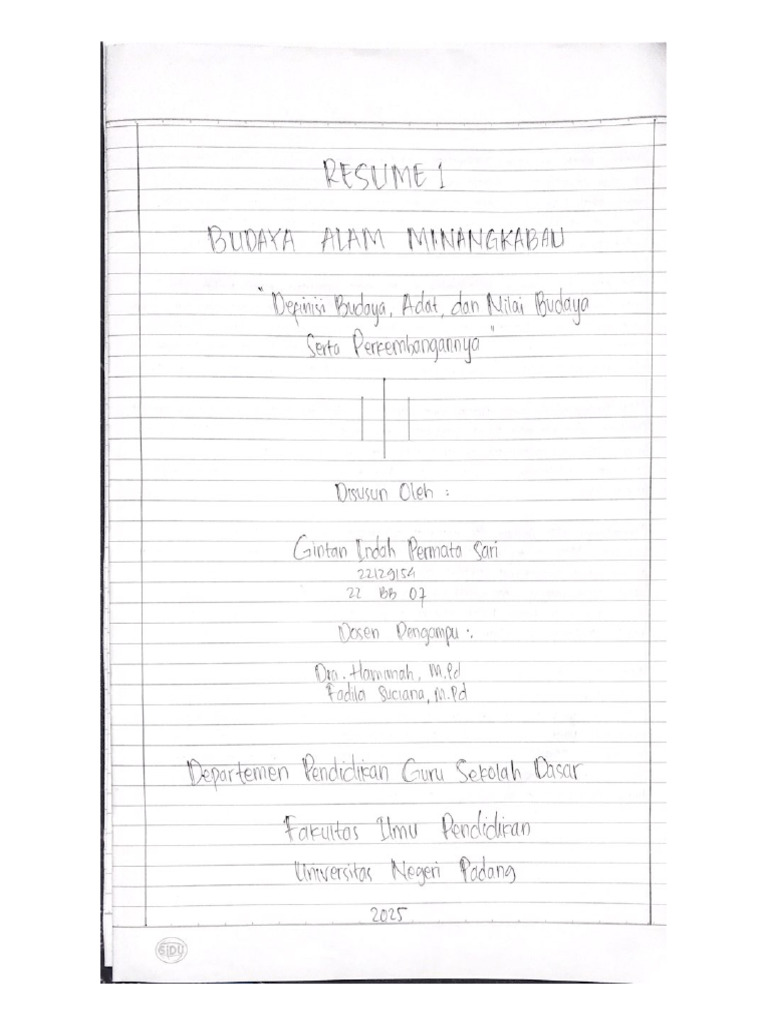 RESUME 1
BUDAYA ALAM MINANGKABAU
"Definisi Budaya, Adat, dan Nilai Budaya
Serta Perkembangannya"
Disusun Oleh :
Gintan Indah Permata Sari
22129154
22 BB 07
Dosen Pengampu :.
Dra. Hamimah, M.Pd
Fadila Suciana, M.Pd
Departemen Pendidikan Guru Sekolah Dasar
Fakultas Ilmu Pendidikan
Universitas Negeri Padang
2025
SIDU